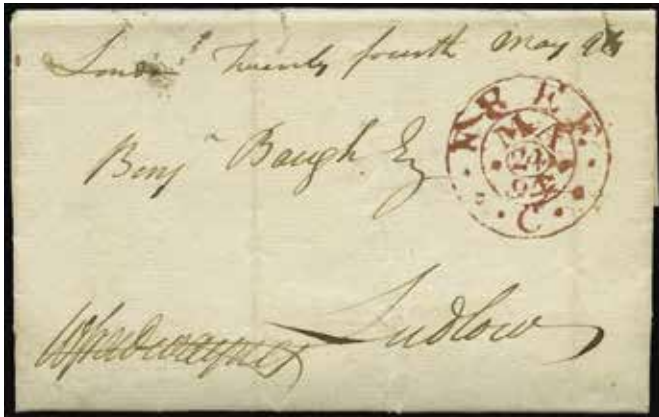 London Twenty fourth May
FREE
MA
24
94
C
Benjn Baugh Esq
Ludlow